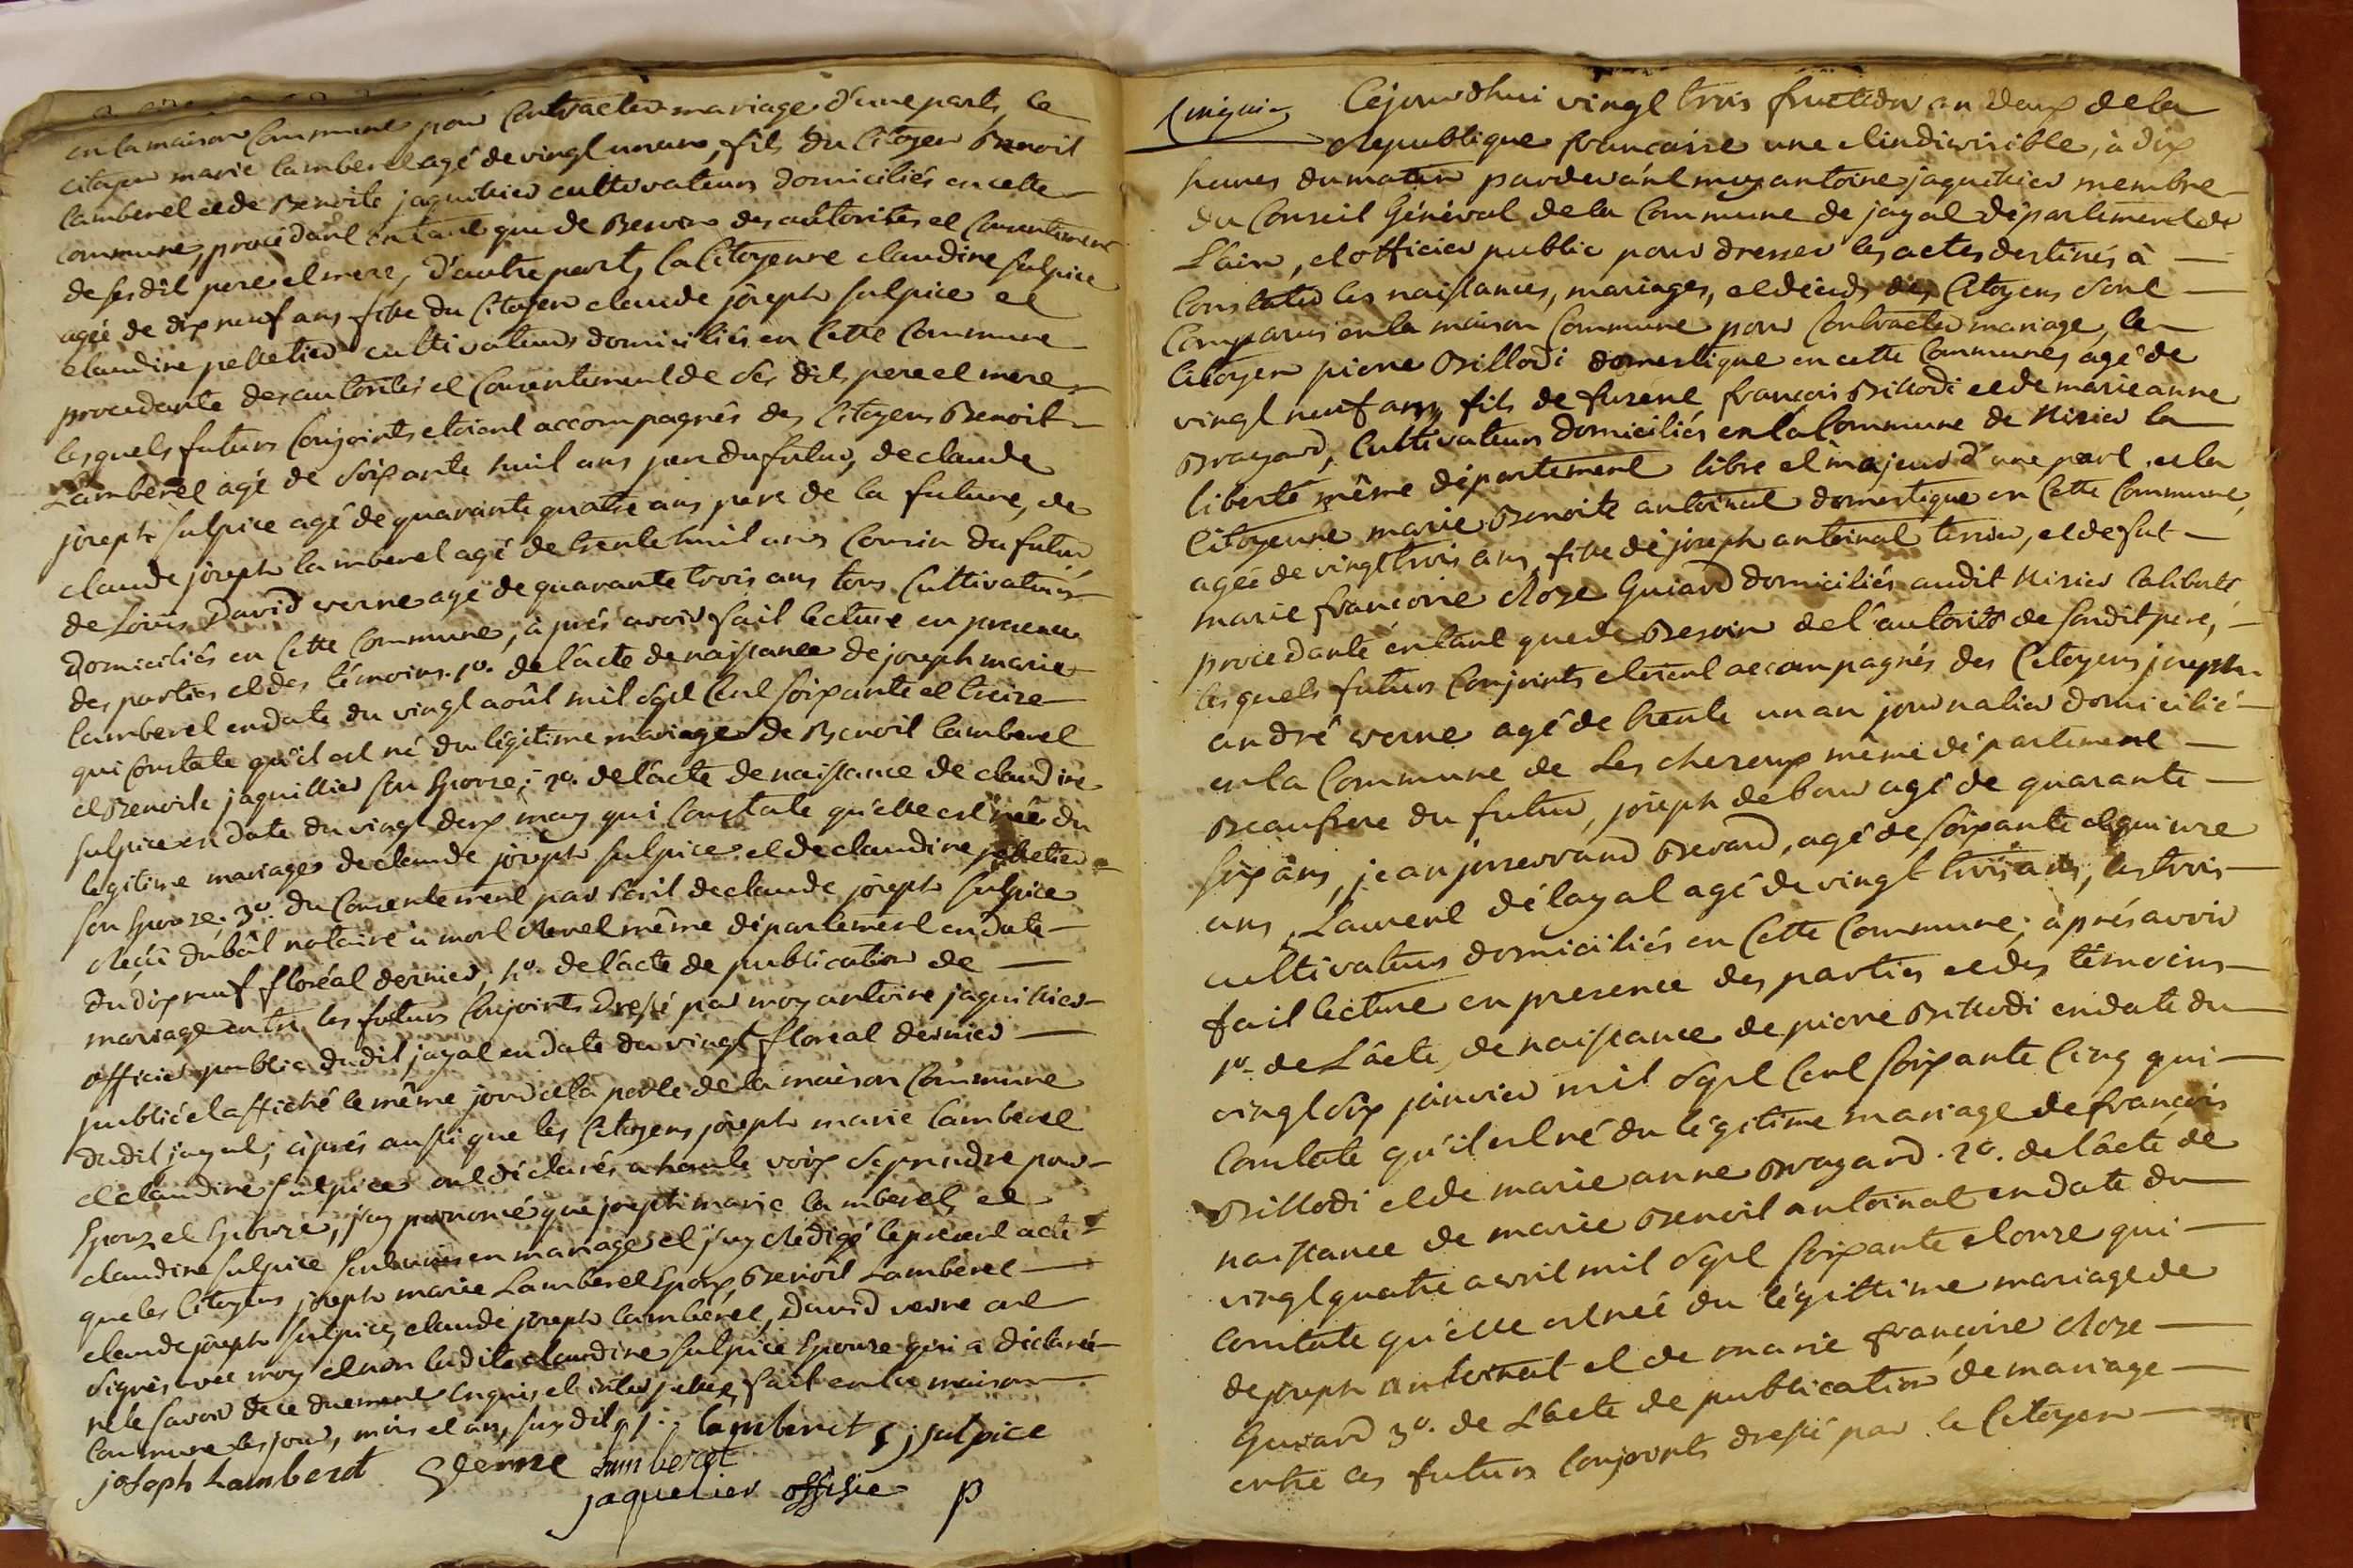 en la maison Commune pour Contracter mariage d'une part, le
citoyen marie lamberel agé de vingt un an, fils du Citoyen Benoit
lamberel et de Benoite jaquillier cultivateurs domiciliés en cette
Commune, procédant en tant que de Besoin des autorités et Consentement
de ses dit pere et mere, d'autre part, la Citoyenne claudine sulpice
agée de dix neuf ans fille du Citoyen claude joseph sulpice et
claudine pelletier cultivateurs domiciliés en Cette Commune
procedante des autorités et Consentement de Ses dits pere et mere
lesquels futurs Conjoints etoient accompagnés des Citoyens Benoit
Lamberel agé de soixante huit ans pere du futur, de claude
joseph sulpice agé de quarante quatre ans pere de la future, de
claude joseph lamberel agé de trente huit ans Cousin du futur
de Louis David verne agé de quarante trois ans tous Cultivateurs
domiciliés en Cette Commune, après avoir fait lecture en presence
des parties et des témoins. 1º. de l'acte de naissance de joseph marie
lamberel en date du vingt août mil sept Cent soixante et treize
qui Constate qu'il est né du légitime mariage de Benoit lamberel
et Benoite jaquillier son Epouse; 2º. de l'acte de naissance de claudine
sulpice en date du vingt deux may qui Constate qu'elle est née du
legitime mariage de claude joseph sulpice et de claudine pelletier
son Epouse; 3º. du Consentement par Ecrit de claude joseph sulpice
Reçû dubât notaire a mont Revel même département en date
du dix neuf floréal dernier, 4º. de l'acte de publication de
mariage entre les futurs Conjoints dressé par moy antoine jaquillier
officier public dudit jayat en date du vingt floreal dernier
publié et affiché le même jour à la porte de la maison Commune
dudit jayat; après aussi que les Citoyens joseph marie lamberel
et claudine sulpice ont déclarés a haute voix se prendre pour
Epoux et Epouse, j'ay prononcé que joseph marie lamberel et
claudine sulpice sont unis en mariage et j'ay Rédigé le present acte
que les Citoyens joseph marie Lamberel Epoux, Benoît Lamberel
claude joseph sulpice, claude joseph lamberel, David verne ont
signés avec moy et non ladite claudine sulpice Epouse qui a déclarée
ne le savoir de ce duement enquis et interpellée, fait en la maison
Commune les jour, mois et an, susdit lamberet C j sulpice
joseph Lamberet verne lamberet
jaquelier offisie p
Cejourdhui vingt trois fructidor an deux de la
Republique francaise une et indivisible, à dix
heures du matin pardevant moy antoine jaquillier membre
du Conseil Général de la Commune de jayat département de
L'ain, et officier public pour dresser les actes destinés à
Constater les naissances, mariages, et décéds des Citoyens sont
Comparus en la maison Commune pour Contracter mariage, le
Citoyen pierre Billodi domestique en cette Commune, agé de
vingt neuf ans fils de furent françois Billodi et de marie anne
Brayard, Cultivateurs domiciliés en la Commune de Nizier la
liberté même département libre et majeur d'une part, et la
Citoyenne marie Benoite antoinat domestique en Cette Commune,
agée de vingt trois ans, fille de joseph antoinat terrier, et de fut
marie françoise Roze Guiard domiciliés audit Nizier la liberté,
procedante en tant que de Besoin de l'autorité de sondit pere,
lesquels futurs Conjoints etoient accompagnés des Citoyens joseph
andré verne agé de trente un an journalier domicilié
en la Commune de Les cheroux même département
Beaufrere du futur, joseph debour agé de quarante
six ans, jean joserrand Berard, agé de soixante et quinze
ans, Laurent délayat agé de vingt trois ans, les trois
cultivateurs domiciliés en Cette Commune; après avoir
fait lecture en presence des parties et des témoins
1º. de L'acte, de naissance de pierre Billodi en date du
vingt six janvier mil sept Cent soixante Cinq qui
Constate qu'il est né du légitime mariage de françois
Billodi et de marie anne Brayard. 2º. de l'acte de
naissance de marie Benoit antoinat en date du
vingt quatre avril mil sept soixante et onze qui
Constate qu'elle est née du légittime mariage de
de joseph antoinat et de marie françoise Roze
Guiard 3º. de L'acte de publication de mariage
entre les futurs Conjoints dressé par le Citoyen